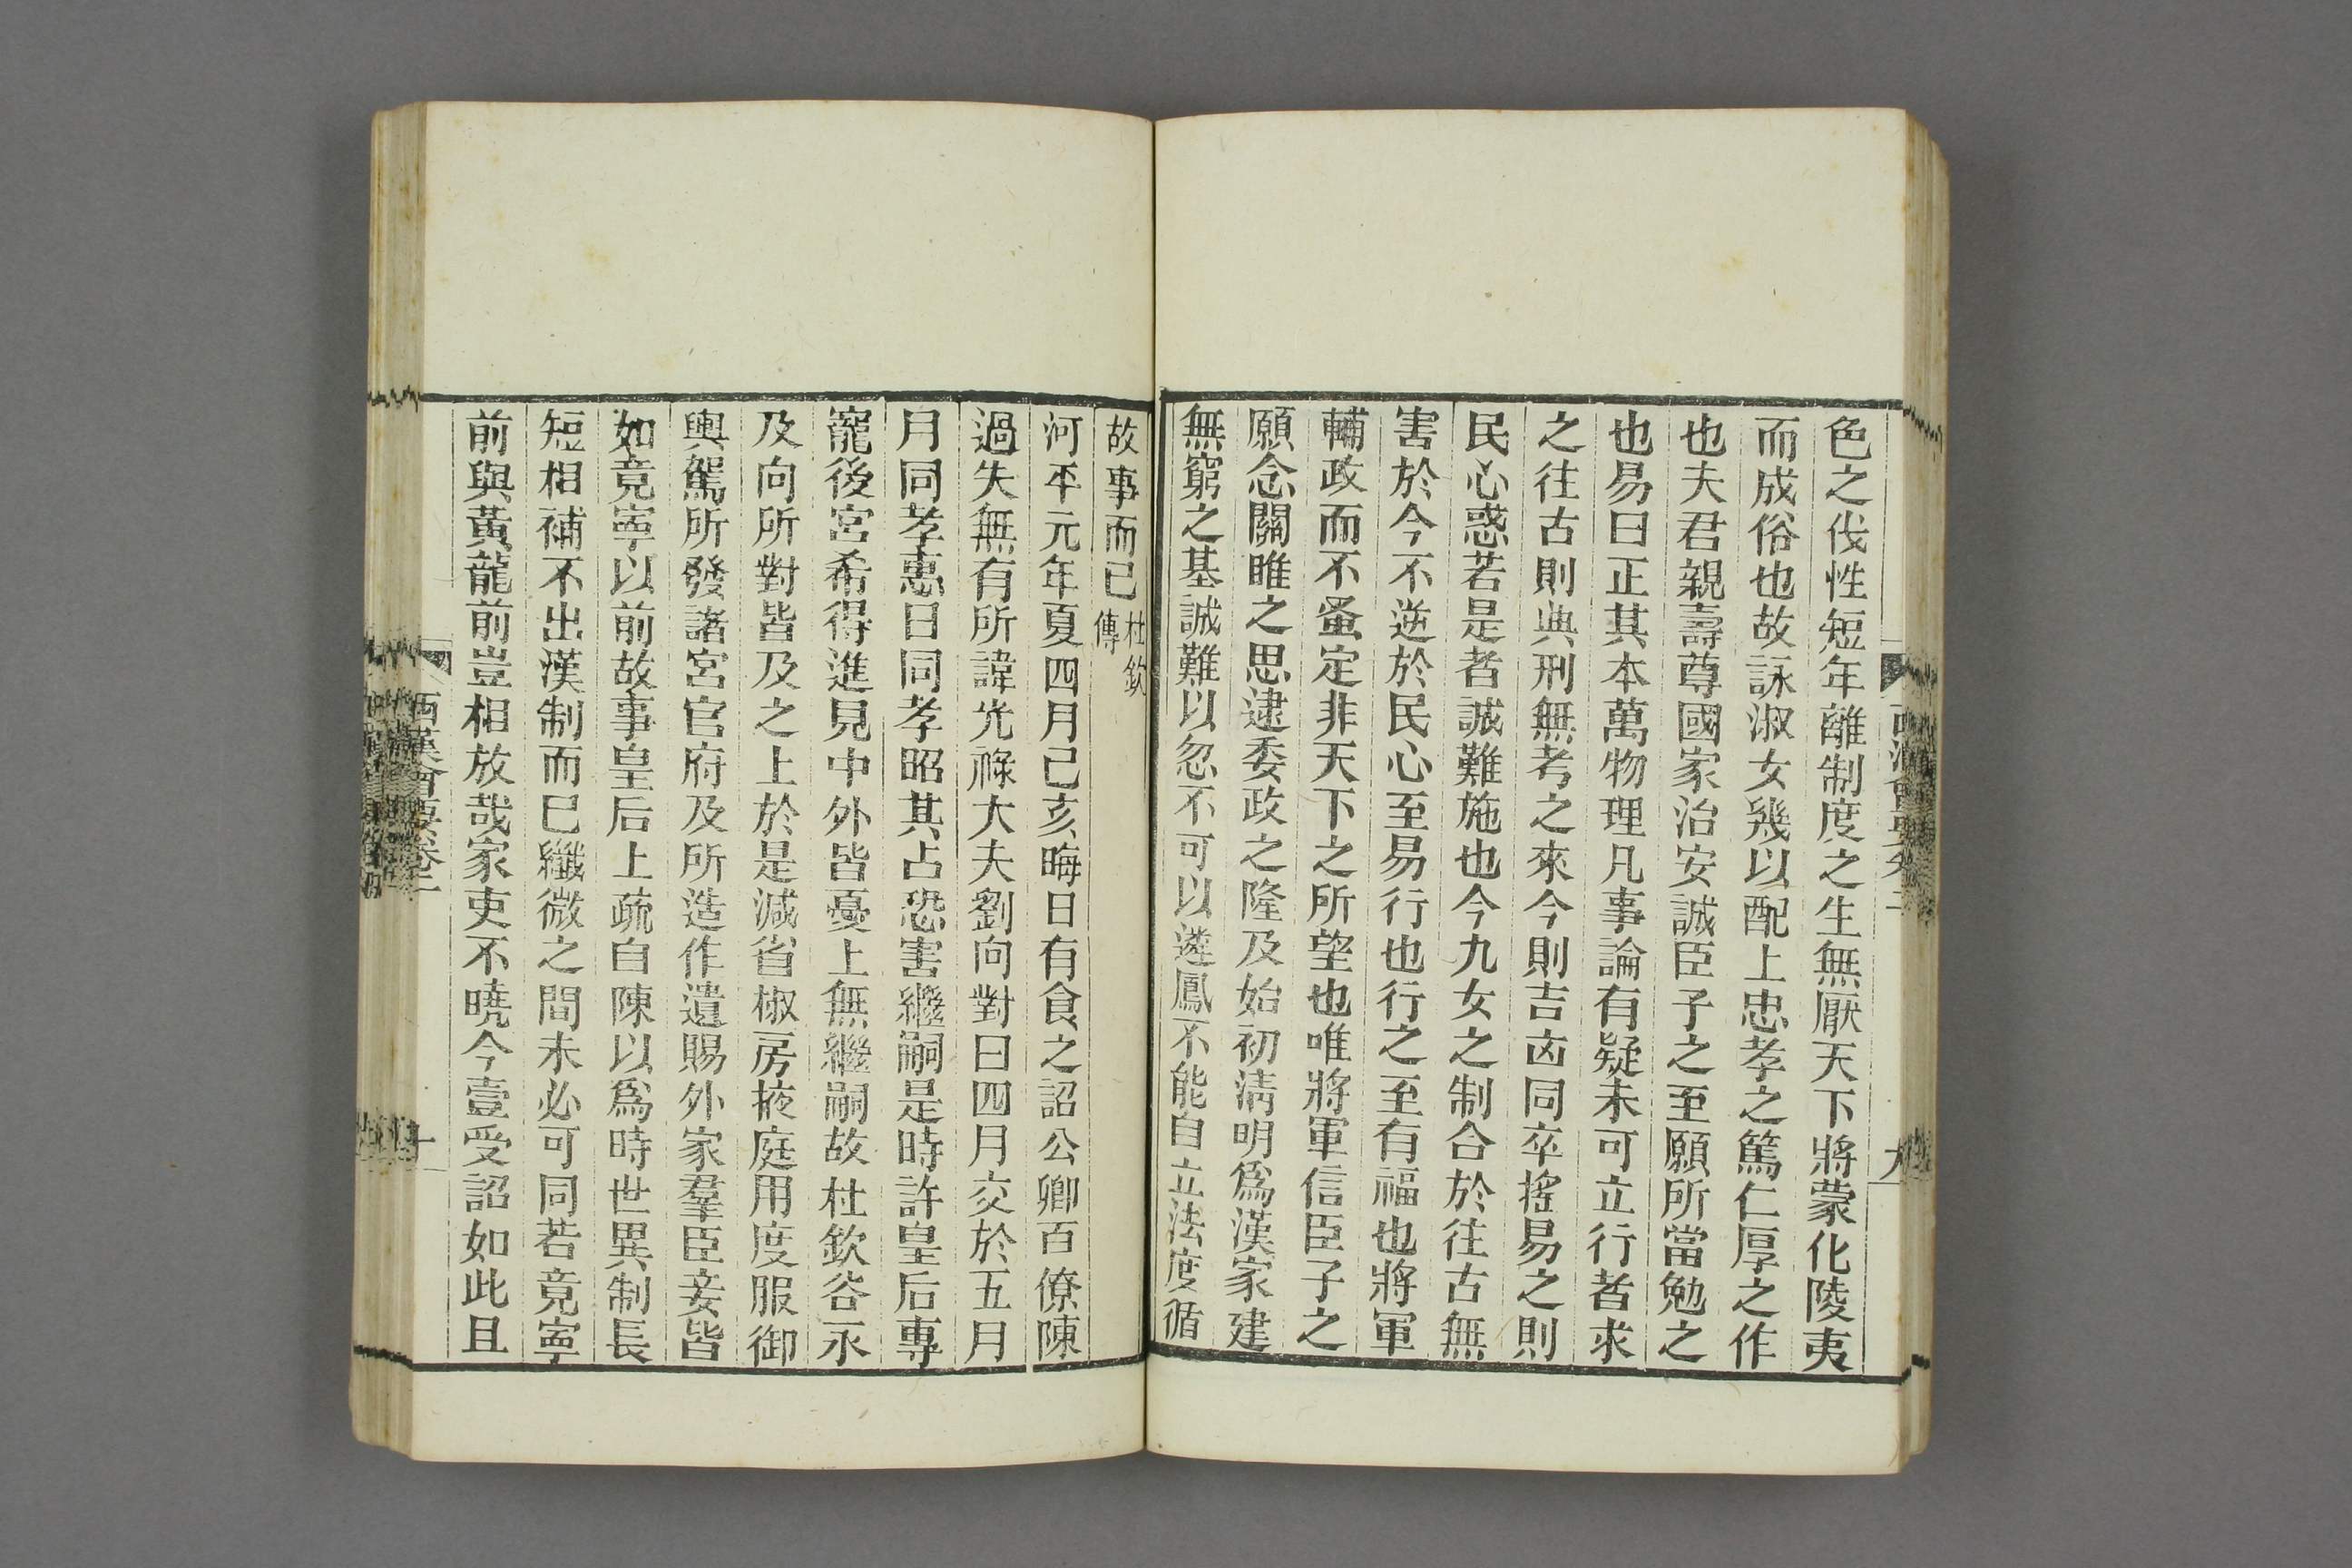 色之伐性短年離制度之生無厭天下將蒙化陵夷
而成俗也故詠淑女幾以配上忠孝之篤仁厚之作
也夫君親壽尊國家治安誠臣子之至願所當勉之
也易曰正其本萬物理凡事論有疑未可立行者求
之往古則典刑無考之來今則吉凶同卒搖易之則
民心惑若是者誠難施也今九女之制合於往古無
害於今不逆於民心至易行也行之至有福也將軍
輔政而不蚤定非天下之所望也唯將軍信臣子之
願念關雎之思逮委政之隆及始初清明爲漢家建
無窮之基誠難以忽不可以遴鳳不能自立法度循
故事而已杜欽傳
河平元年夏四月己亥晦日有食之詔公卿百僚陳
過失無有所諱光祿大夫劉向對曰四月交於五月
月同孝惠日同孝昭其占恐害繼嗣是時許皇后專
寵後宮希得進見中外皆憂上無繼嗣故杜欽谷永
及向所對皆及之上於是減省椒房掖庭用度服御
輿駕所發諸宮官府及所造作遺賜外家羣臣妾皆
如竟寧以前故事皇后上疏自陳以爲時世異制長
短相補不出漢制而已纖微之間未必可同若竟寧
前與黃龍前豈相放哉家吏不曉今壹受詔如此且
西漢會要卷二
十